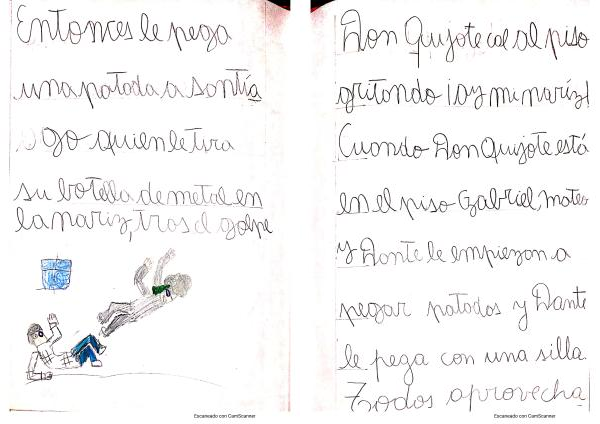 Entonces le pega
una patada a Santía
go quien le tira
su botella de metal en
la nariz, tras el golpe
Escaneado con CamScanner
Don Quijote cae al piso
gritando ¡ay mi nariz!
Cuando Don Quijote está
en el piso Gabriel, Mateo
y Dante le empiezan a
pegar patadas y Dante
le pega con una silla.
Todos aprovecha
Escaneado con CamScanner